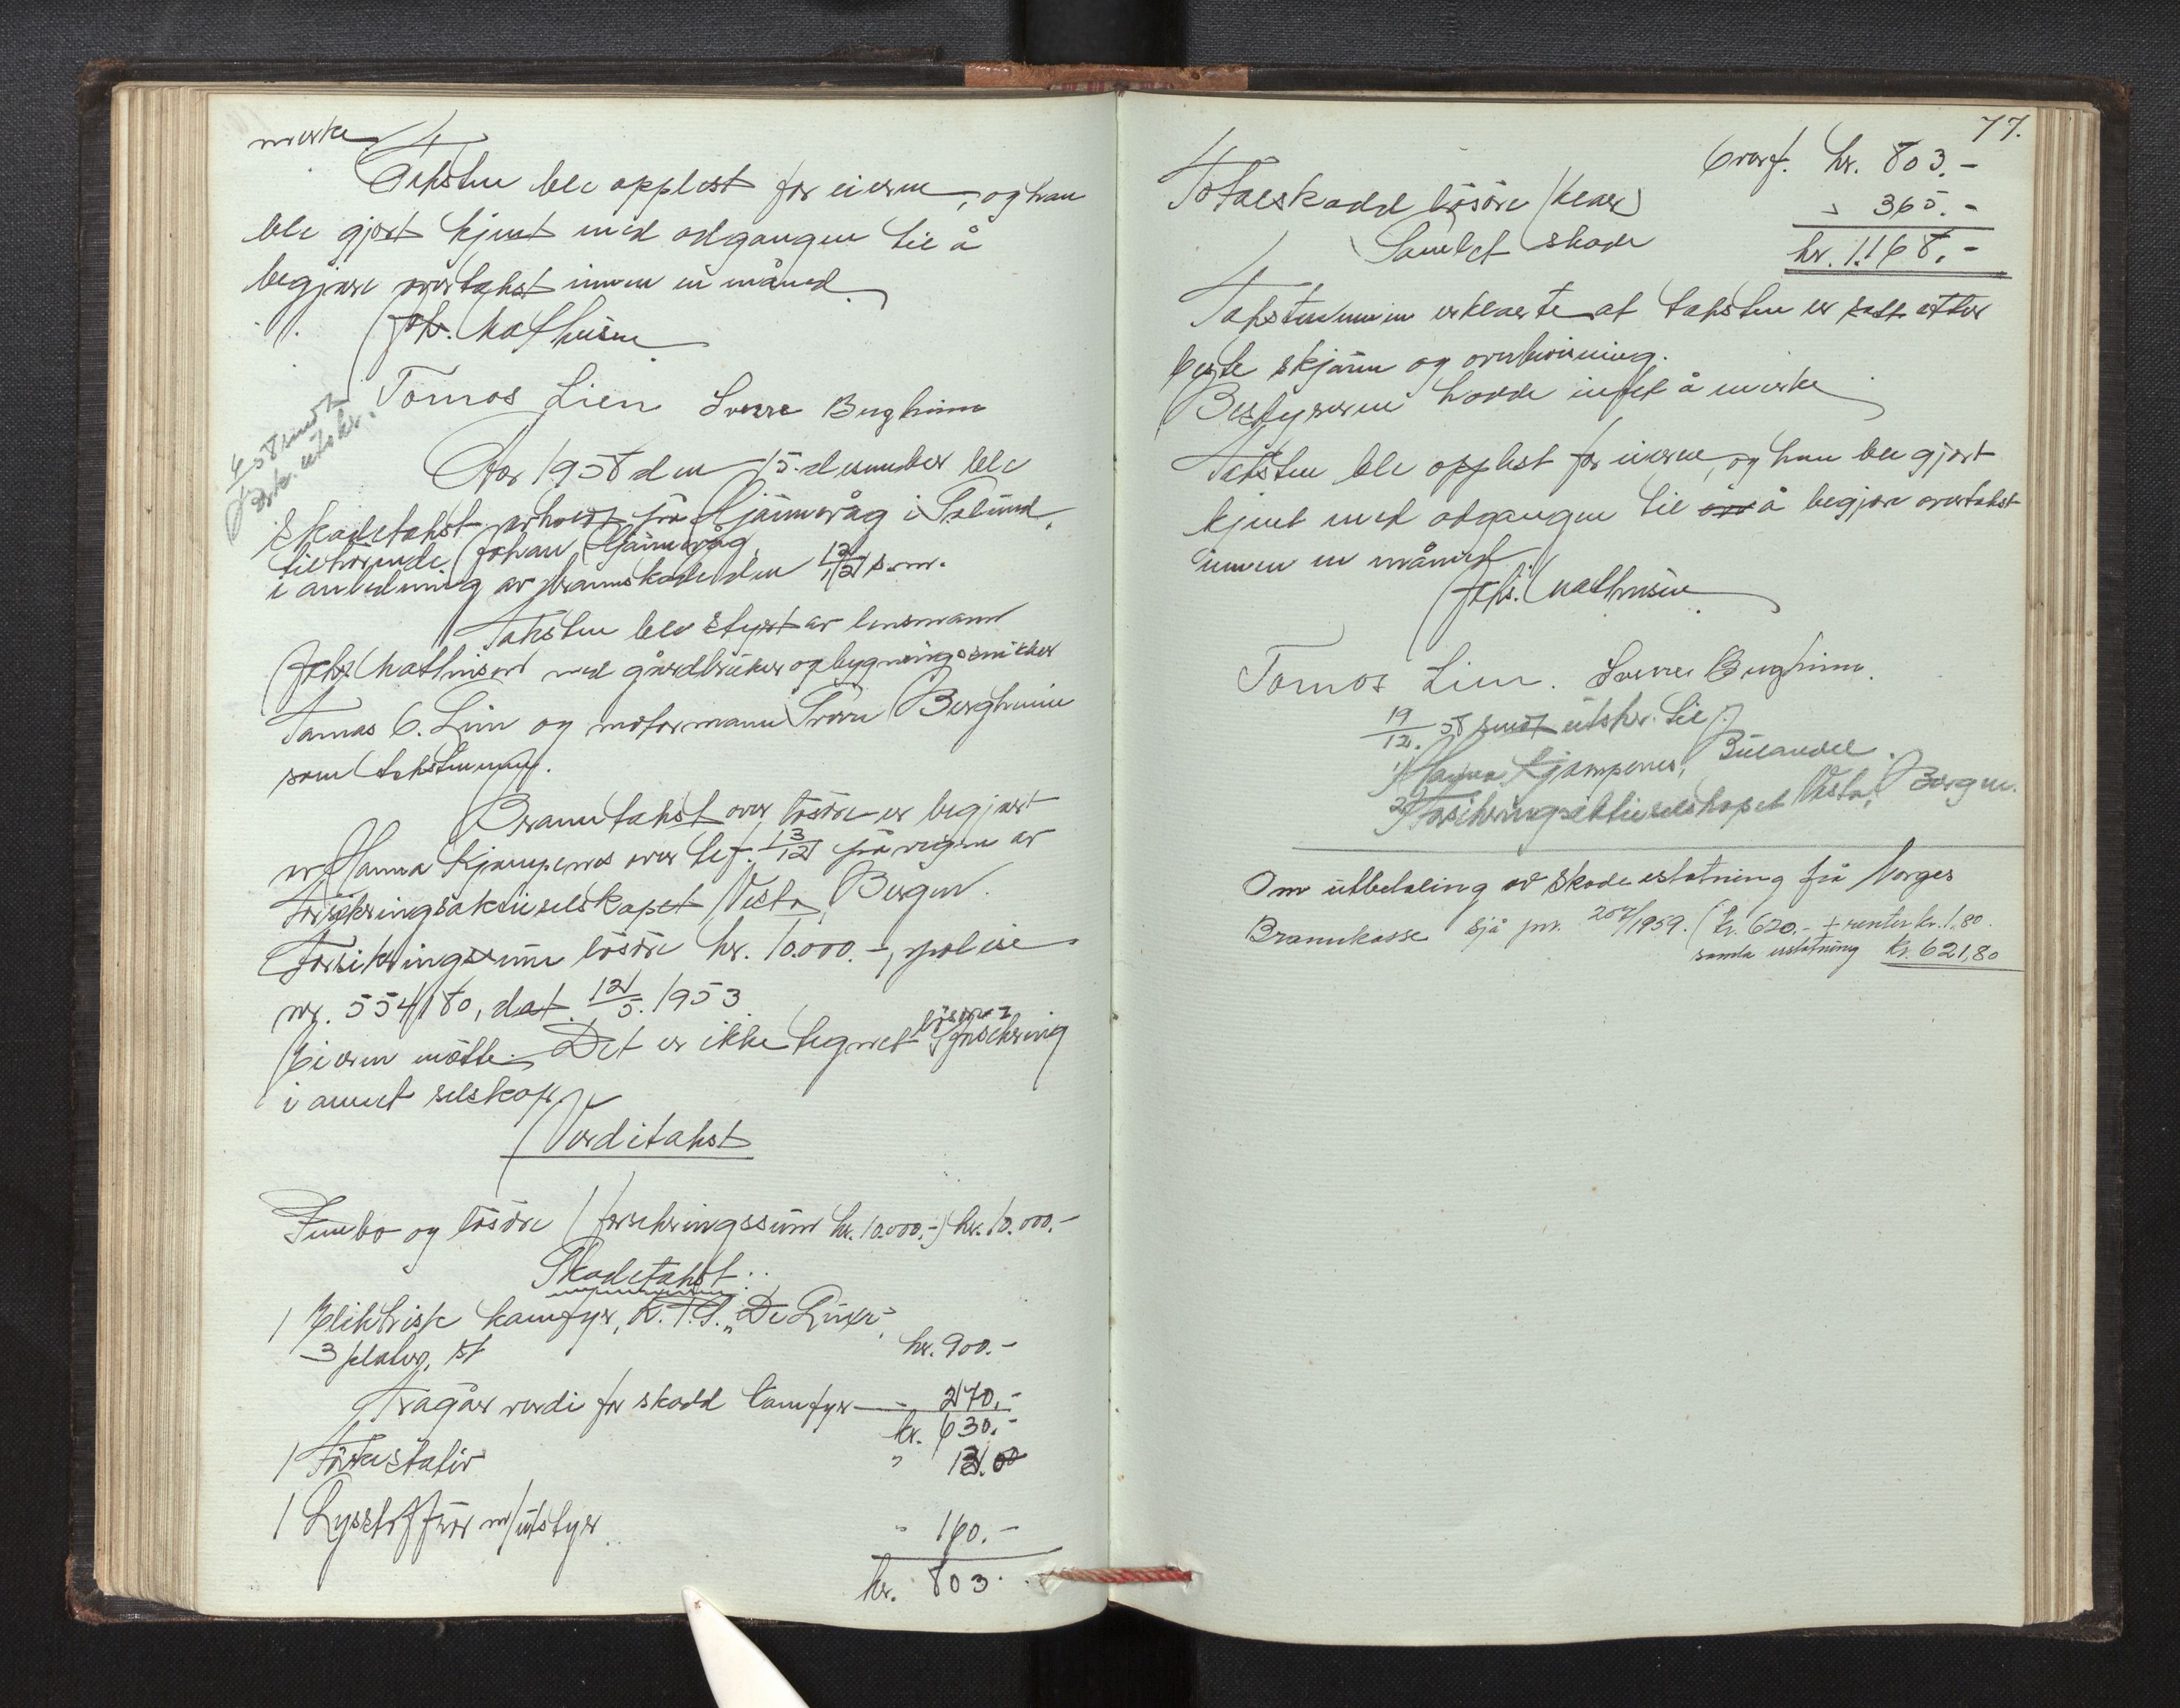 merke.
Taksten ble opplest for eieren, og han
ble gjort kjent med adgangen til å
begjære overtakst innen en måned.
Joh. Mathisen
Tomas Lien Sverre Bergheim
År 1958 den 15. desember ble
skadetakst avholdt på Kjämeråg i Solund,
tilhørende Johan Kjämeråg
i anledning av brannskade den 12/12 s.m.
Taksten ble styrt av lensmann
Johs. Mathisen med gårdbruker og bygningssnikker
Tomas C. Lien og motormann Sverre Bergheim
som takstmenn.
Branntakst over løsøre er begjært
av Hanna Kjampenes over tlf. 13/12 på vegne av
Forsikringsaktieselskapet Vesta, Bergen.
Forsikringssum løsøre kr. 10.000.-, polise
nr. 554180, dat. 12/5. 1953
Eieren møtte. Det er ikke tegnet løsøre forsikring
i annet selskap.
Verditakst
Innbo og løsøre (forsikringssum kr. 10.000.-) kr. 10.000.-
Skadetakst:
1 Elektrisk komfyr, K.T.S. "De Luxe",
3 plater, st kr. 900.-
Fragår verdi for skadd komfyr - 270.-
kr. 630.-
1 Tørkestativ " 13.00
1 Lysstoffrør m/utstyr " 160.-
kr. 803.-
77.
Overf. kr. 803.-
Totalskadd løsøre (klær) " 365.-
Samlet skade kr. 1.168.-
Takstmennene erklærte at taksten er satt etter
beste skjønn og overbevisning.
Bestyreren hadde intet å merke
Taksten ble opplest for eieren, og hun ble gjort
kjent med adgangen til å begjære overtakst
innen en måned.
Johs. Mathisen
Tomas Lien. Sverre Bergheim.
19/12. 58 sendt utskr. til
1) Hanna Kjampenes, Bulandet.
2) Forsikringsaktieselskapet Vesta, Bergen.
Om utbetaling av skadeerstatning frå Norges
Brannkasse sjå jnr. 257/1959. (Kr. 620.- + renter kr. 1,80.
samla erstatning Kr. 621,80